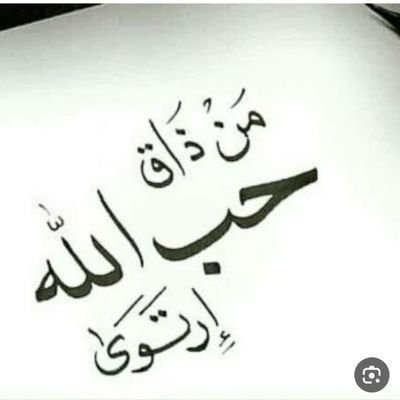 مَنْ ذَاق
حب اللّٰه
إِرتَوَى